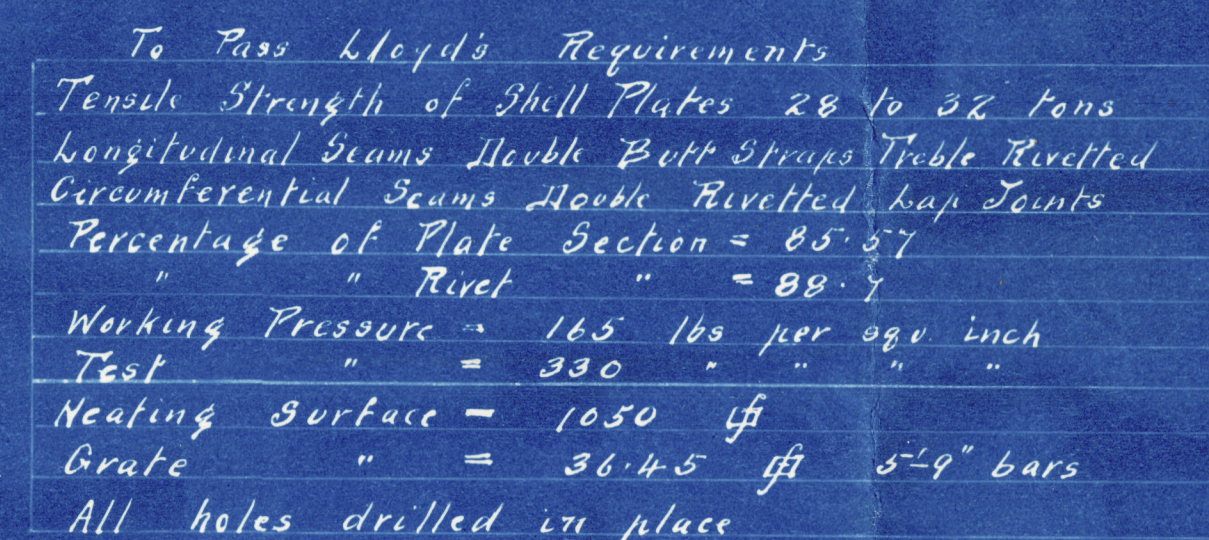 To Pass Lloyd's Requirements
Tensile Strength of Shell Plates 28 to 32 tons
Longitudinal Seams Double Butt Straps Treble Rivetted
Circumferential Seams Double Rivetted Lap Joints
Percentage of Plate Section = 85·57
" " Rivet " = 88·7
Working Pressure = 165 lbs per squ. inch
Test " = 330 " " " "
Heating Surface = 1050
Grate " = 36·45 5'-9" bars
All holes drilled in place